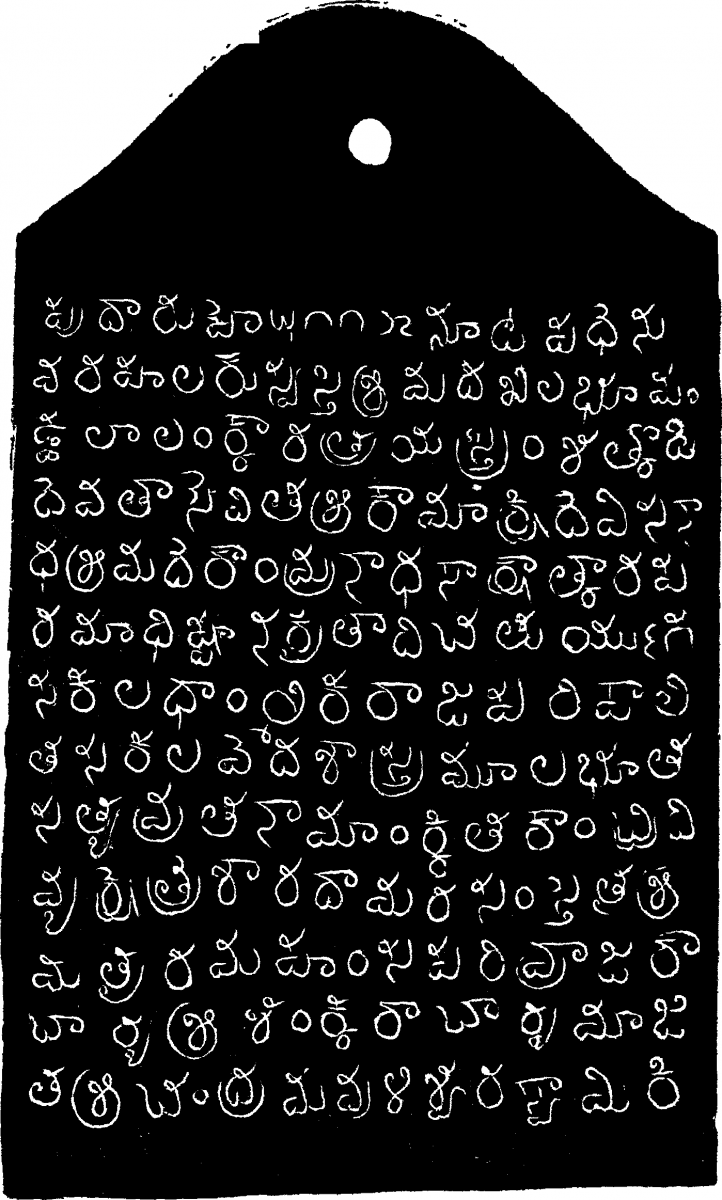 పు దారు హొ ౧౧ నూట పధెను
వరహాలరు స్వస్తిశ్రీమదఖిలభూమం
డ్డలాలంర్కారత్రయస్త్రింశత్కొడి
దెవతాసెవితశ్రీకామాక్షిదెవిసనా
ధశ్రీమదెకాంమ్రనాధసాక్షాత్కారప
రమాధిష్ఠానక్రుతాదిచతుయుగ
సకలధాంత్రికరాజపరిపాలి
తసకలవేదశాస్త్రమూలభూత
సత్యవ్రతనామాంర్కితకాంచ్చిది
వ్యక్షెత్రశారదామఠసంస్తితశ్రీ
మత్పరమహంసపరివ్రాజకా
చార్యశ్రీశంర్కరాచార్యమాజి
తశ్రీచంద్రమవుళిశ్వరస్వామికి